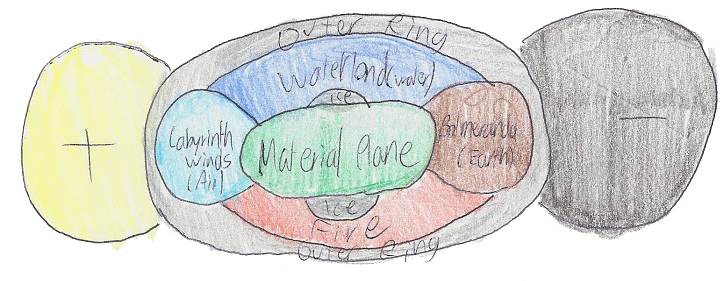 Outer Ring
Waterland (water)
ice
Labyrinth
winds
(Air)
Material Plane
(Earth)
ice
Fire
outer Ring
+
-